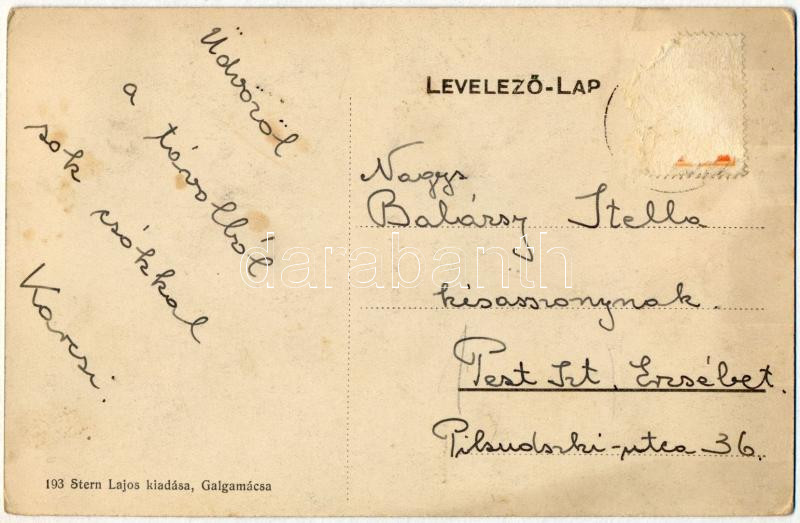 Üdvözöl
a távolból
sok csókkal
Karcsi.
LEVELEZŐ-LAP
Nagys
Balázsy Stella
kisasszonynak.
Pest Szt. Erzsébet.
Pilsudszki-utca 36.
193 Stern Lajos kiadása, Galgamácsa
darabanth